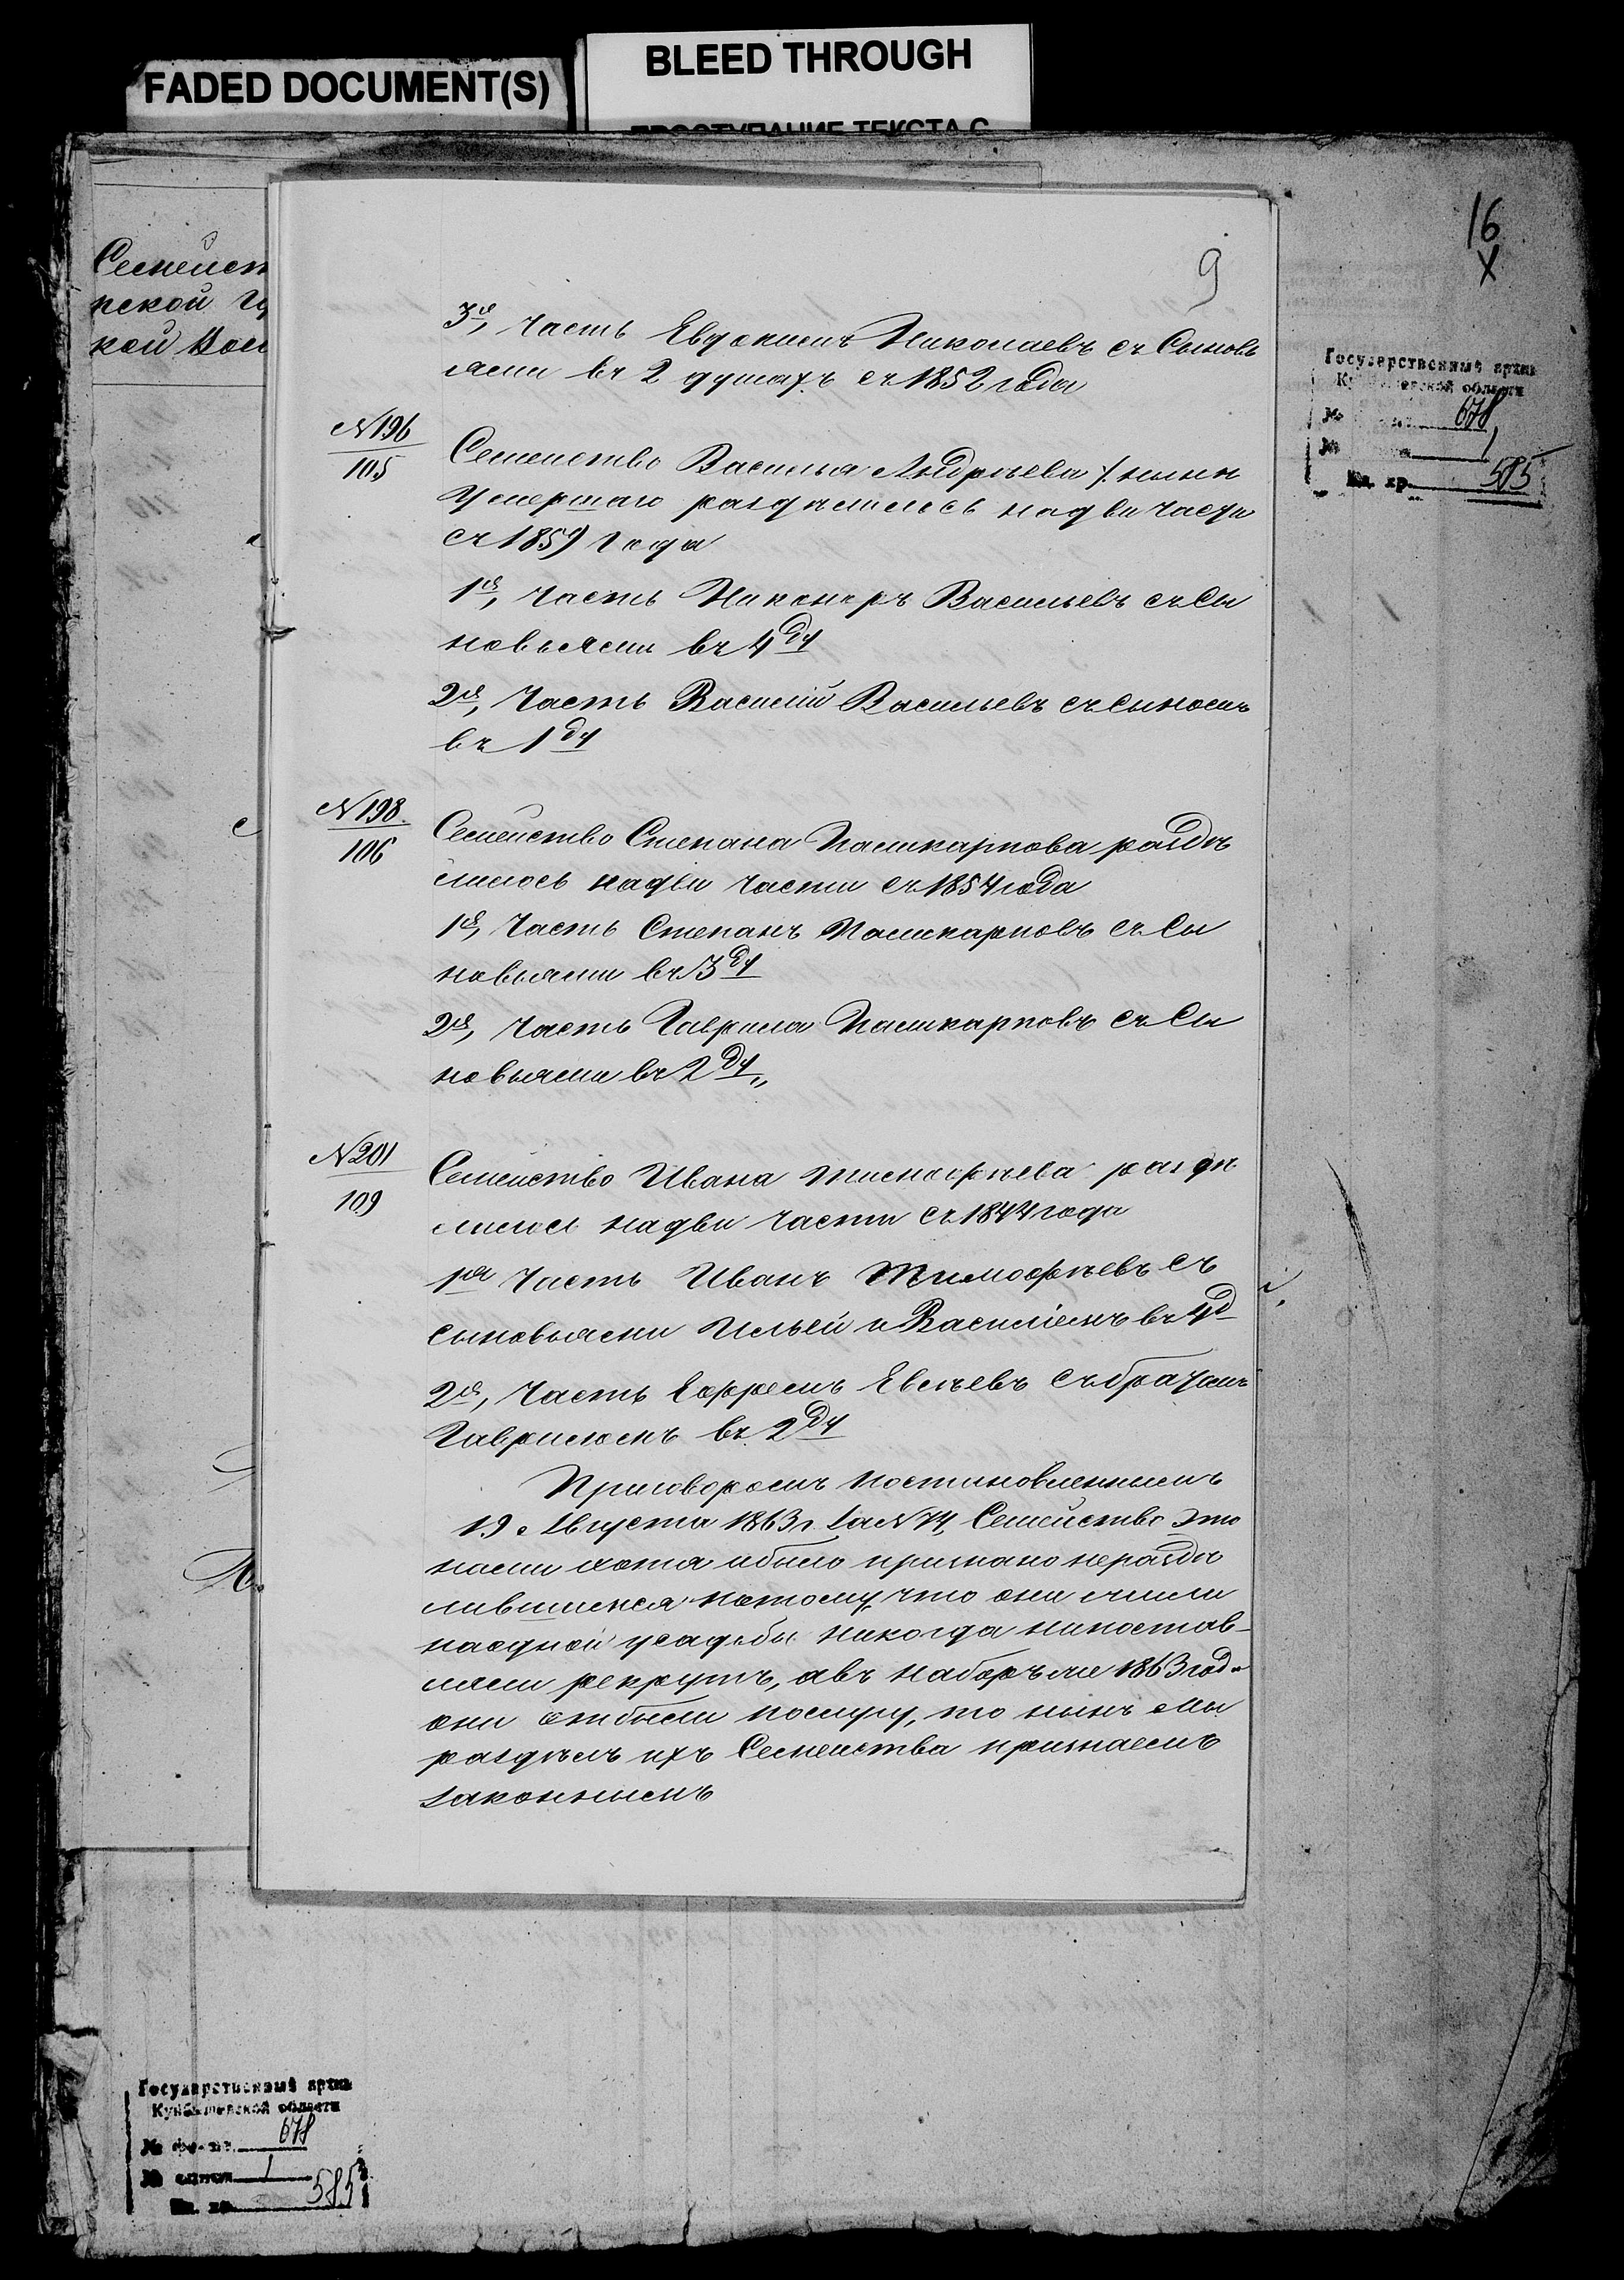 FADED DOCUMENT(S)
BLEED THROUGH
ПРОСТУПАНИЕ ТЕКСТА С
16
X
9
Семейст
пской Гу
кой Вол
Государственный архив
Куйбышевской области
№ 678
№ 1
Ед. хр. 585
3я, Часть Евдокимъ Николаевъ съ Сыновь
ями въ 2 душахъ съ 1852 года
N196
105
Семейство Василья Андреева /: нынѣ
Умершаго раздѣлилось на две Части
съ 1859 Года
1я, Часть Никоноръ Васильевъ съ Сы
новьями въ 4 ду
2я, Часть Василій Васильевъ съ сыномъ
въ 1 ду
N198
106
Семейство Степана Паликарпова раздѣ
лилось надвѣ Части съ 1854 года
1я, Часть Степанъ Паликарповъ съ Сы
новьями въ 3 ду
2я, Часть Гаврила Паликарповъ съ Сы
новьями въ 2 ду„
N201
109
Семейство Ивана Тимофѣева раздѣ
лилось надвѣ Части съ 1844 года
1я Часть Иванъ Тимофѣевъ съ
сыновьями Ильей и Василіемъ въ 4 д
2я, Часть Ефремъ Евсѣевъ съ братомъ
Гавриломъ въ 2 ду
Приговоромъ постановленнымъ
19 Августа 1863 г. за N 74, Семейство это
нами хотя и было признано нераздѣ
лившимся потому, что они жили
на одной усадьбы никогда непостав-
ляли рекрутъ, а въ наборъ же 1863 года
они отбыли полиру, то нынѣ мы
раздѣлъ ихъ Семейства признаемъ
законнымъ
Государственный архив
Куйбышевской области
№ фонда 678
№ описи 1
Ед. хр. 585